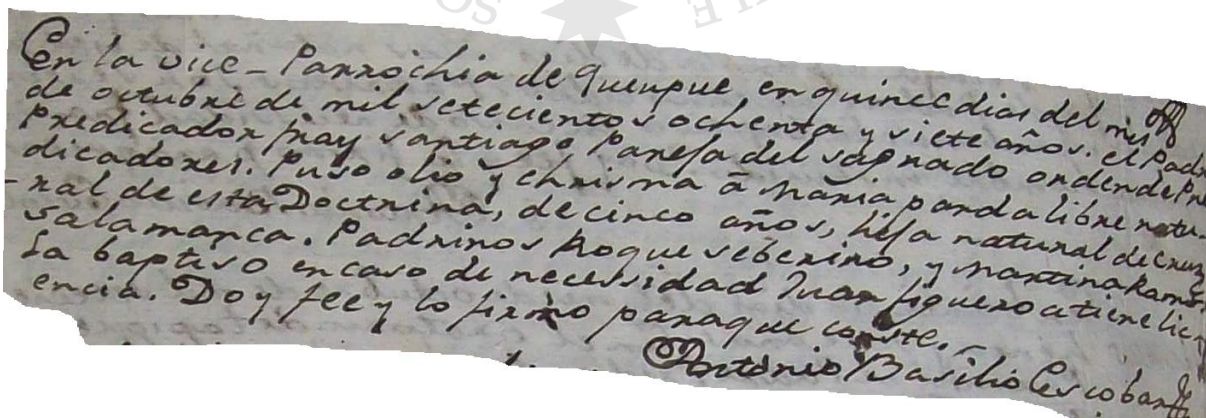 SO
LE
En la vice-Parrochia de Quupue en quince dias del mes
de octubre de mil setecientos ochenta y siete años. el Padre
Predicador fray Santiago Pareja del sagrado orden de Pre
dicadores. Puso olio y chrisma â Maria parda libre natu-
-ral de esta Doctrina, de cinco años, hija natural de Cruz
Salamanca. Padrinos Roque Seberino, y Martina Ramos.
La baptiso en caso de necessidad Juan figueroa tiene lic-
encia. Doy fee y lo firmo paraque conste.
Antonio Basilio Escobar